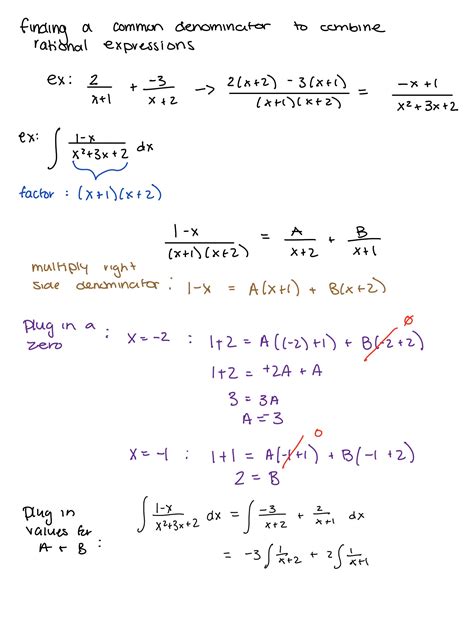 finding a common denominator to combine
rational expressions
ex: 2/(x+1) + -3/(x+2) -> (2(x+2) - 3(x+1))/((x+1)(x+2)) = (-x+1)/(x²+3x+2)
ex: ∫ (1-x)/(x²+3x+2) dx
factor : (x+1)(x+2)
(1-x)/((x+1)(x+2)) = A/(x+2) + B/(x+1)
multiply right
side denominator : 1-x = A(x+1) + B(x+2)
plug in a
zero : x = -2 : 1+2 = A((-2)+1) + B(-2+2) 0
1+2 = +2A + A
3 = 3A
A = -3
x = -1 : 1+1 = A(-1+1) 0 + B(-1+2)
2 = B
plug in
values for
A + B : ∫ (1-x)/(x²+3x+2) dx = ∫ -3/(x+2) + 2/(x+1) dx
= -3∫ 1/(x+2) + 2∫ 1/(x+1)